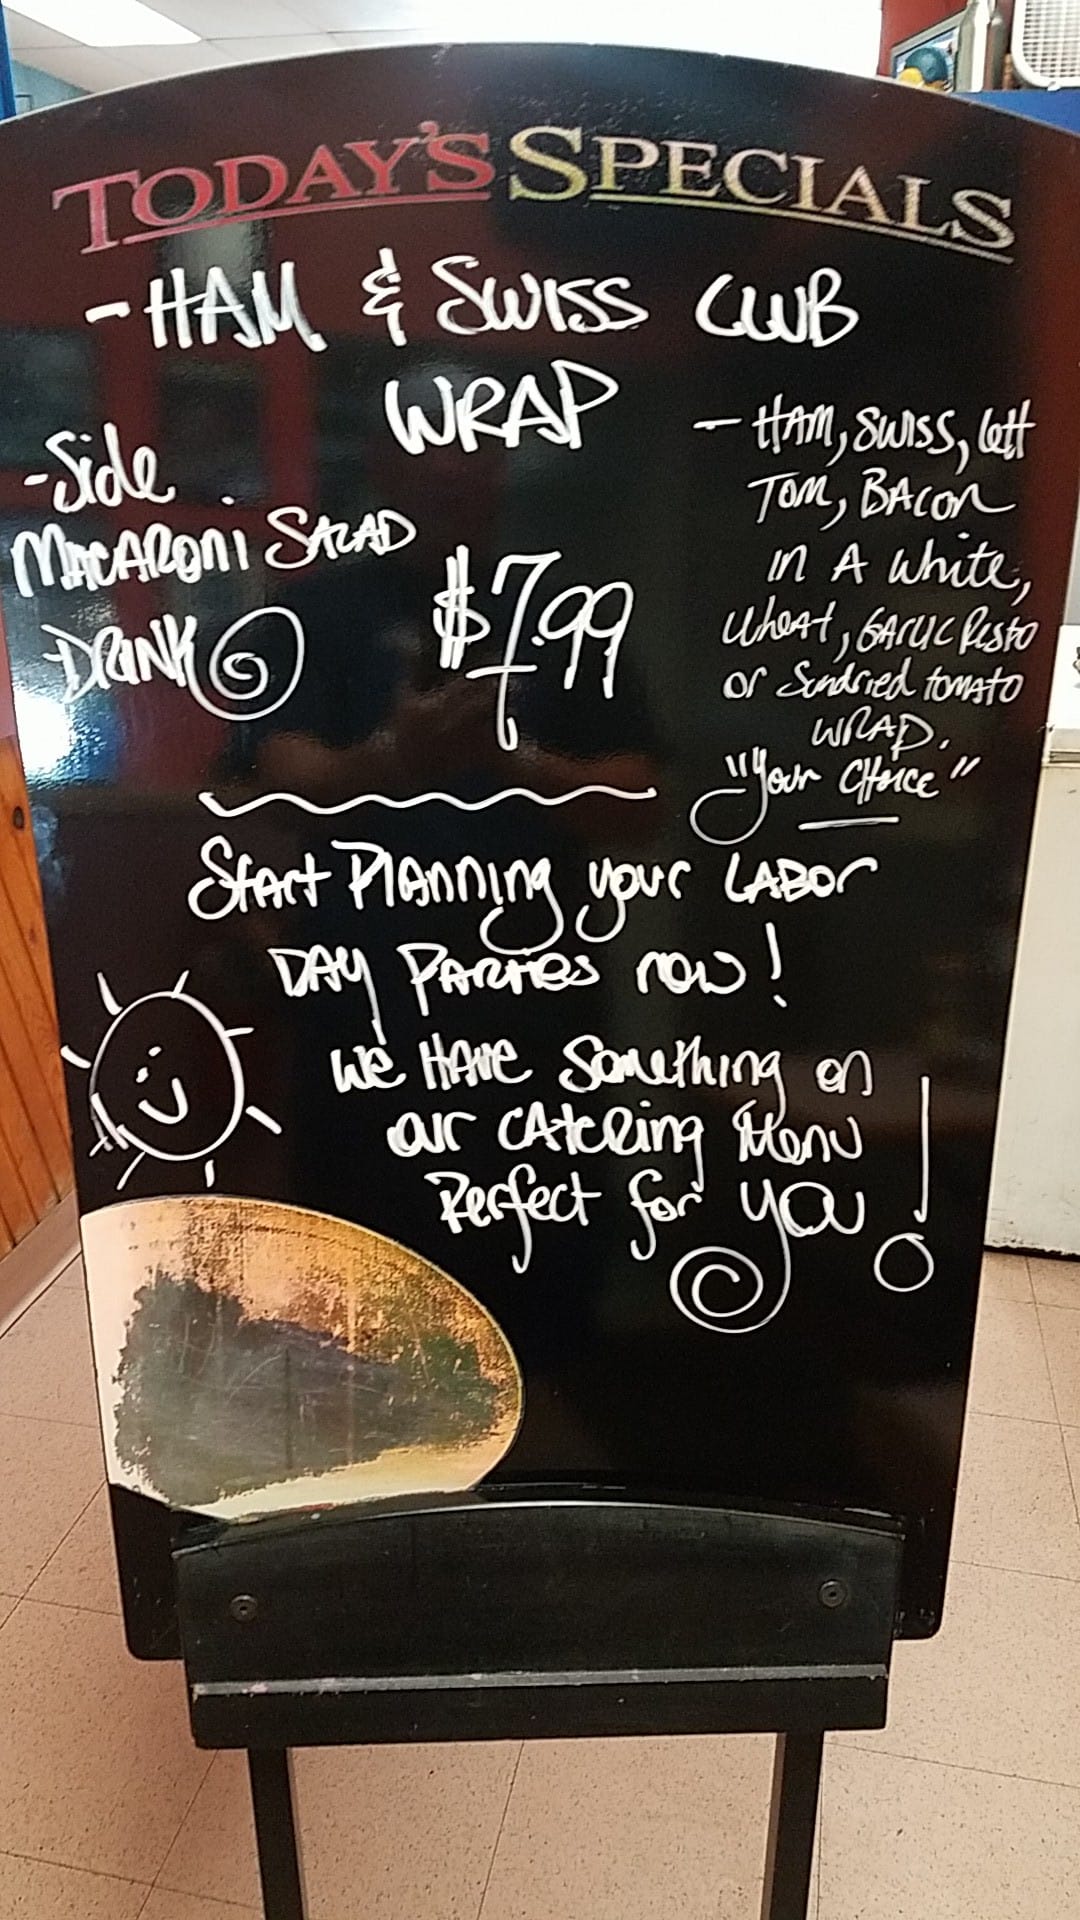 TODAY'S SPECIALS
- HAM & SWISS CLUB
WRAP
- Side
MACARONI SALAD
DRINK
$7.99
- HAM, SWISS, lett
TOM, BACON
IN A White,
Wheat, GARLIC Pesto
or Sundried tomato
WRAP.
"Your CHOICE"
Start Planning your LABOR
DAY PARTIES now!
We HAVE Something on
our CAtering Menu
Perfect for YOU!